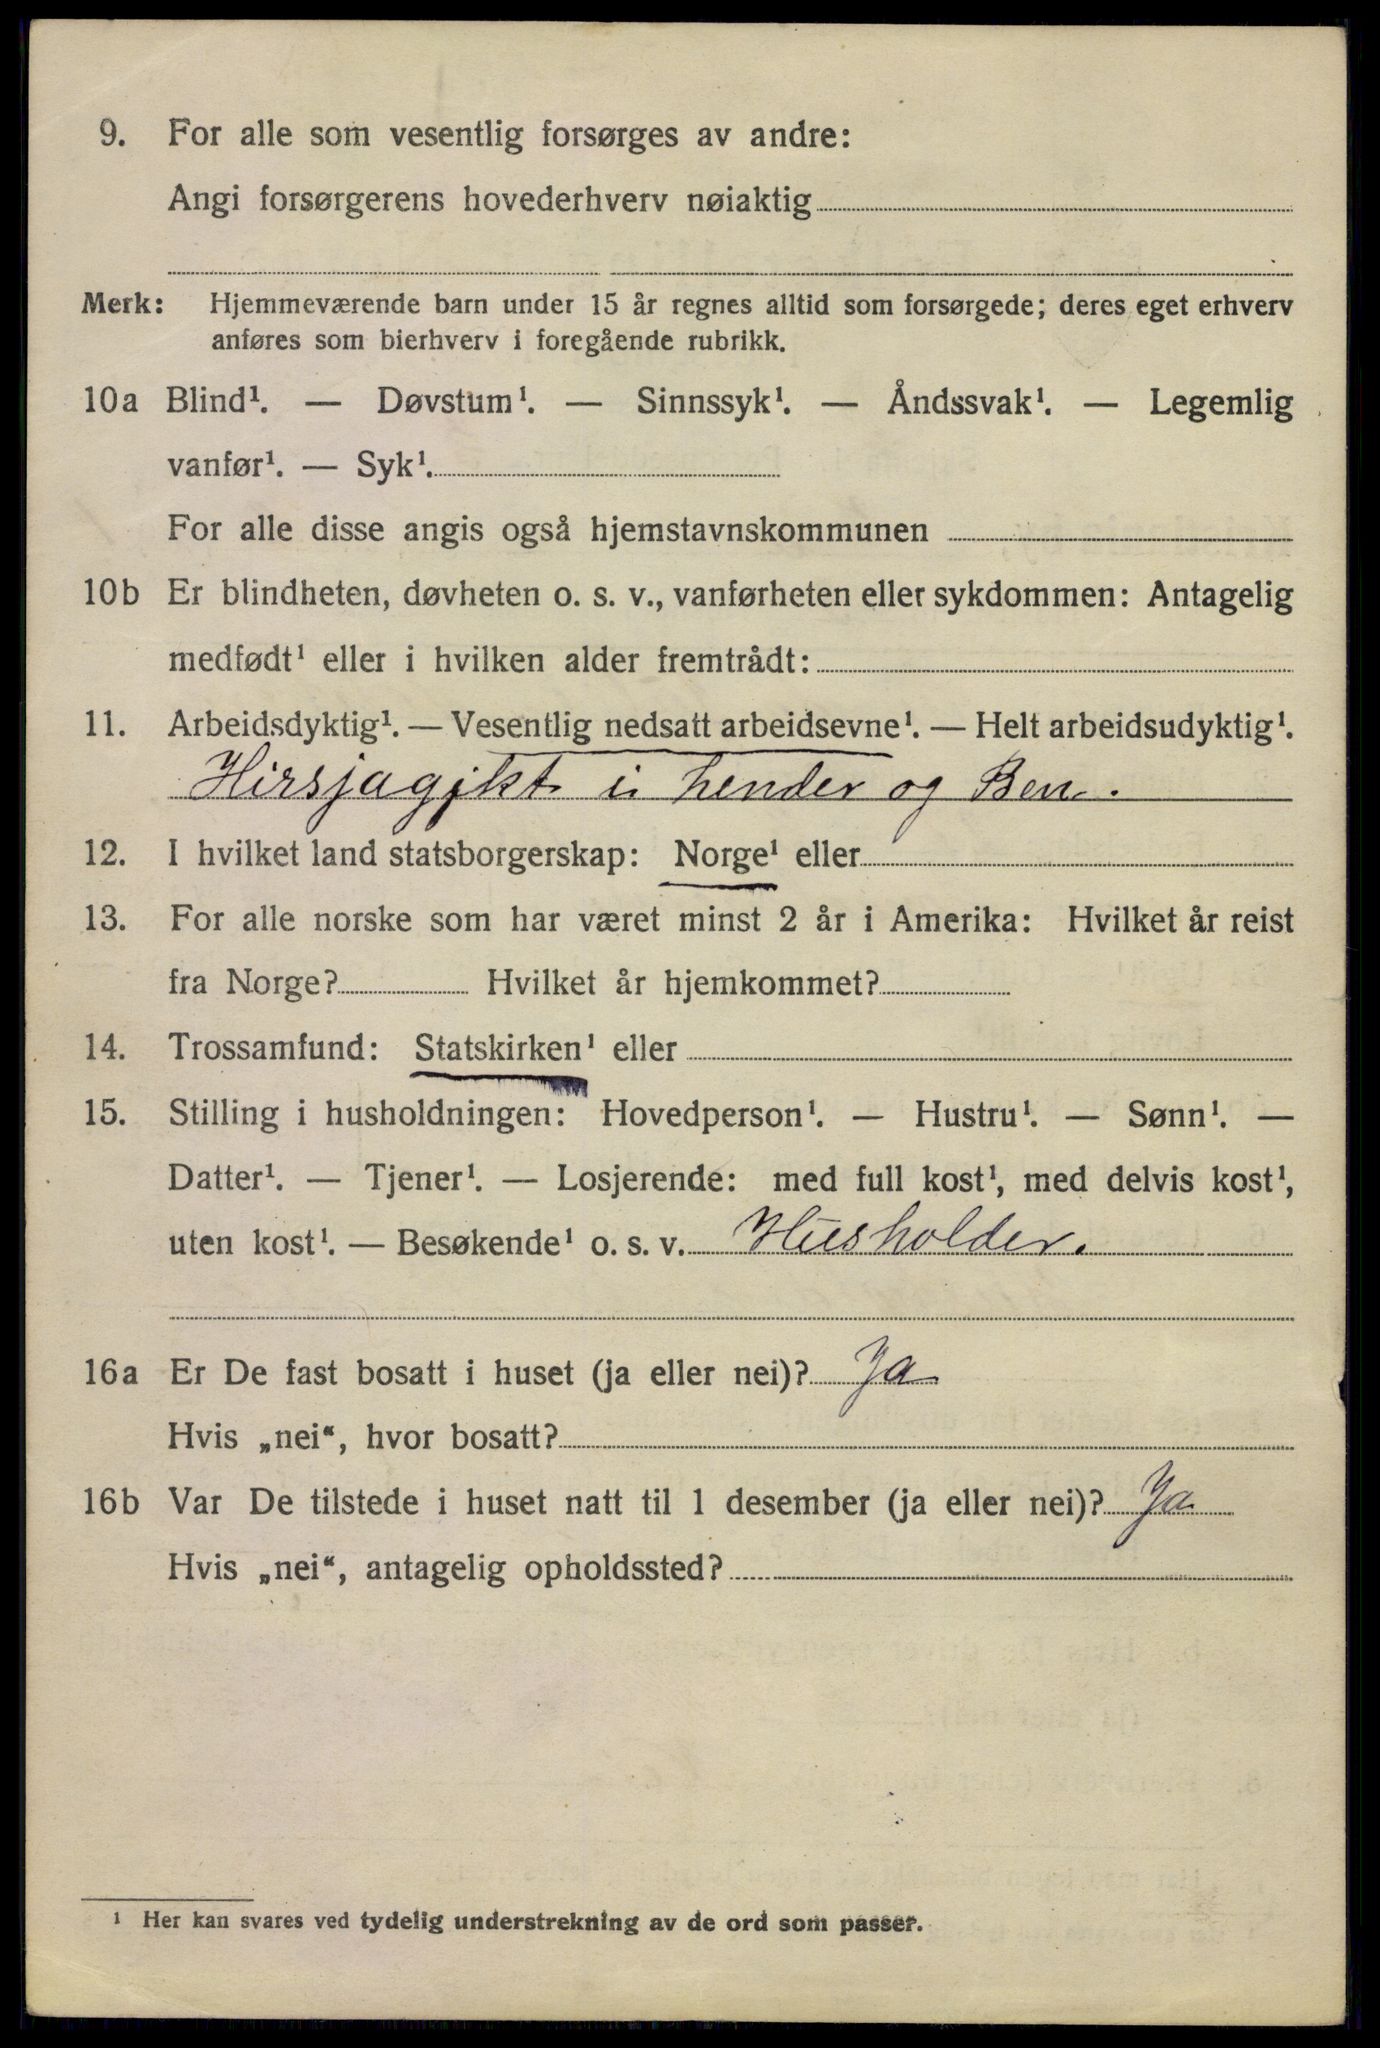 9. For alle som vesentlig forsørges av andre:
Angi forsørgerens hovederhverv nøiaktig
Merk: Hjemmeværende barn under 15 år regnes alltid som forsørgede; deres eget erhverv
anføres som bierhverv i foregående rubrikk.
10a Blind¹. — Døvstum¹. — Sinnssyk¹. — Åndssvak¹. — Legemlig
vanfør¹. — Syk¹.
For alle disse angis også hjemstavnskommunen
10b Er blindheten, døvheten o. s. v., vanførheten eller sykdommen: Antagelig
medfødt¹ eller i hvilken alder fremtrådt:
11. Arbeidsdyktig¹. — Vesentlig nedsatt arbeidsevne¹. — Helt arbeidsudyktig¹.
Hirsjagjkt i hender og Ben.
12. I hvilket land statsborgerskap: Norge¹ eller
13. For alle norske som har været minst 2 år i Amerika: Hvilket år reist
fra Norge? Hvilket år hjemkommet?
14. Trossamfund: Statskirken¹ eller
15. Stilling i husholdningen: Hovedperson¹. — Hustru¹. — Sønn¹. —
Datter¹. — Tjener¹. — Losjerende: med full kost¹, med delvis kost¹,
uten kost¹. — Besøkende¹ o. s. v. Husholder.
16a Er De fast bosatt i huset (ja eller nei)? Ja
Hvis „nei“, hvor bosatt?
16b Var De tilstede i huset natt til 1 desember (ja eller nei)? Ja
Hvis „nei“, antagelig opholdssted?
¹ Her kan svares ved tydelig understrekning av de ord som passer.